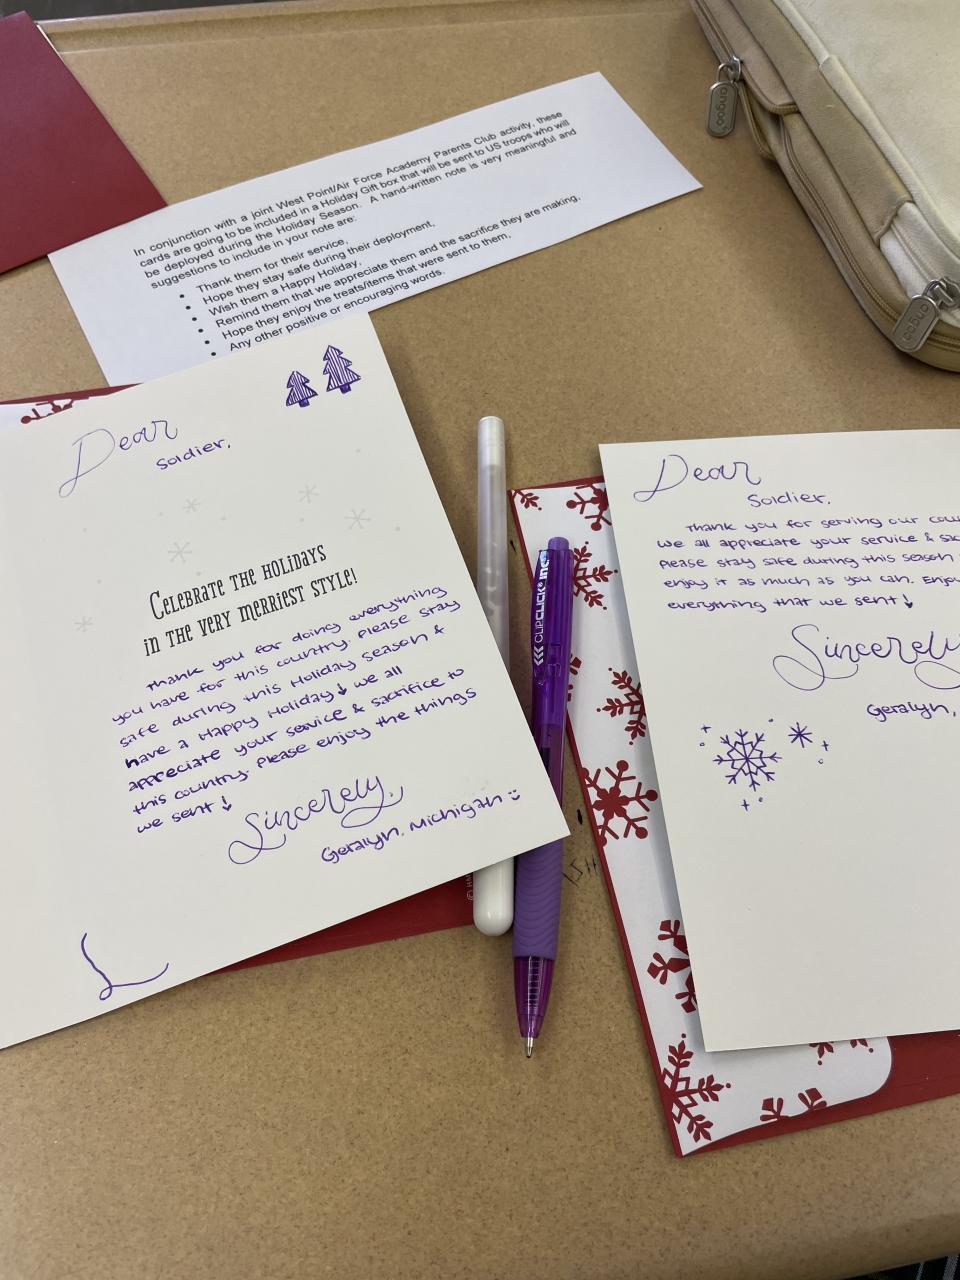 In conjunction with a joint West Point/Air Force Academy Parents Club activity, these
cards are going to be included in a Holiday Gift box that will be sent to US troops who will
be deployed during the Holiday Season. A hand-written note is very meaningful and
suggestions to include in your note are:
• Thank them for their service,
• Hope they stay safe during their deployment,
• Wish them a Happy Holiday,
• Remind them that we appreciate them and the sacrifice they are making,
• Hope they enjoy the treats/items that were sent to them,
• Any other positive or encouraging words.
Dear
Soldier,
CELEBRATE THE HOLIDAYS
IN THE VERY MERRIEST STYLE!
Thank you for doing everything
you have for this country. Please stay
safe during this Holiday season &
have a Happy Holiday! We all
appreciate your service & sacrifice to
this country. Please enjoy the things
we sent!
Sincerely,
Geralyn, Michigan :)
L
CLIPCLICK
Dear
Soldier,
Thank you for serving our
We all appreciate your service &
Please stay safe during this season
enjoy it as much as you can.
everything that we sent!
Sincerely
Geralyn,
angoo
angoo